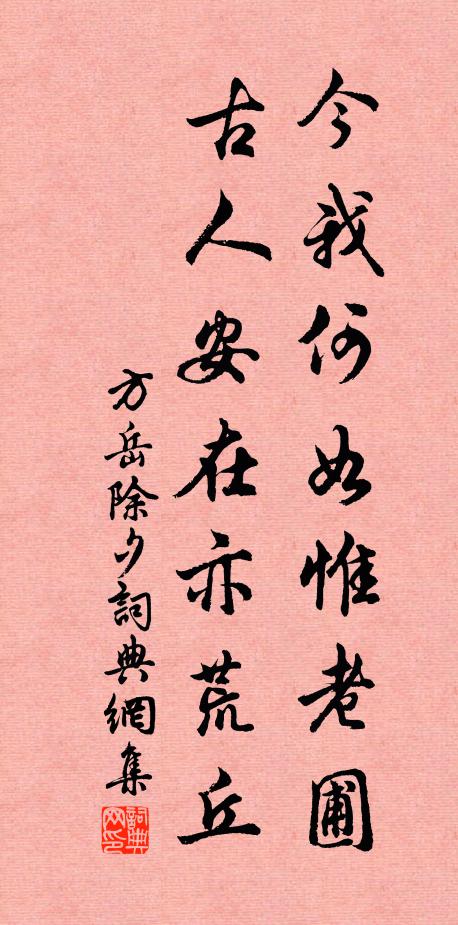 今我何如惟老圃
古人安在亦荒丘
方岳除夕詞典網集
詞典网印